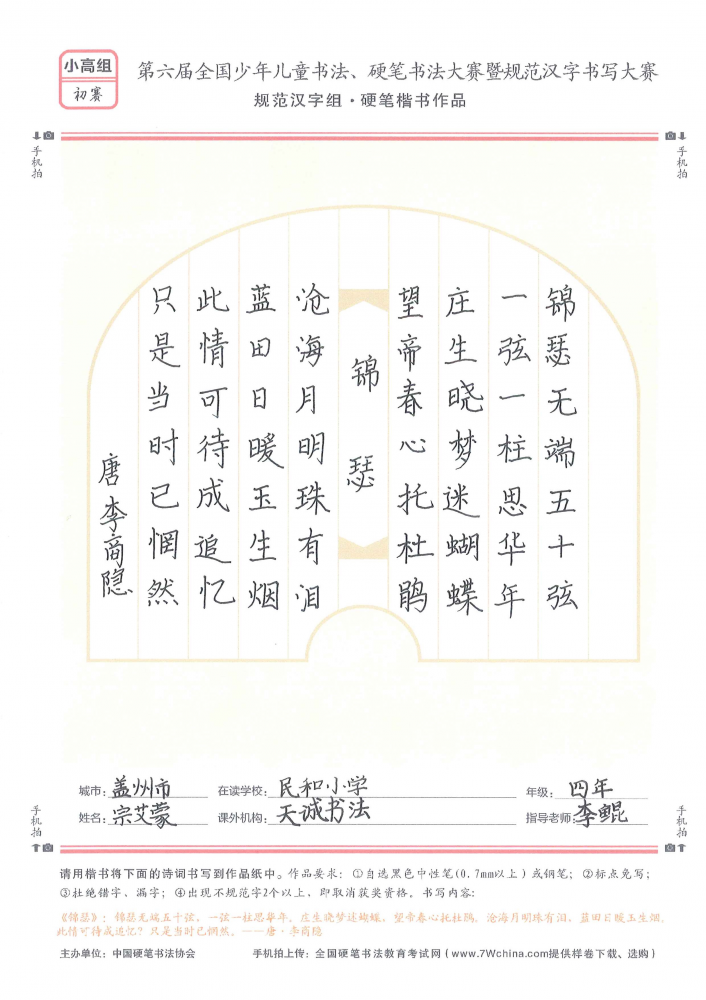 小高组
初赛
第六届全国少年儿童书法、硬笔书法大赛暨规范汉字书写大赛
规范汉字组·硬笔楷书作品
手机拍
手机拍
锦瑟无端五十弦
一弦一柱思华年
庄生晓梦迷蝴蝶
望帝春心托杜鹃
锦瑟
沧海月明珠有泪
蓝田日暖玉生烟
此情可待成追忆
只是当时已惘然
唐李商隐
城市：盖州市 在读学校：民和小学 年级：四年
姓名：宗艾蒙 课外机构：天诚书法 指导老师：李鲲
手机拍
手机拍
请用楷书将下面的诗词书写到作品纸中。作品要求：①自选黑色中性笔(0.7mm以上）或钢笔；②标点免写；
③杜绝错字、漏字；④出现不规范字2个以上，即取消获奖资格。书写内容：
《锦瑟》：锦瑟无端五十弦，一弦一柱思华年。庄生晓梦迷蝴蝶，望帝春心托杜鹃。沧海月明珠有泪，蓝田日暖玉生烟。
此情可待成追忆？只是当时已惘然。——唐·李商隐
主办单位：中国硬笔书法协会 手机拍上传：全国硬笔书法教育考试网（www.7Wchina.com提供样卷下载、选购）